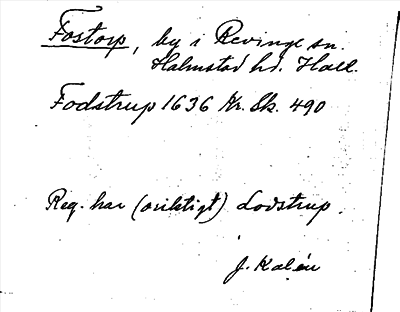 Fostorp, by i Revinge sn.
Halmstad hd. Hall.
Fodstrup 1636 Kr. Sk. 490
Reg. har (oriktigt) Lodstrup.
J. Kalén